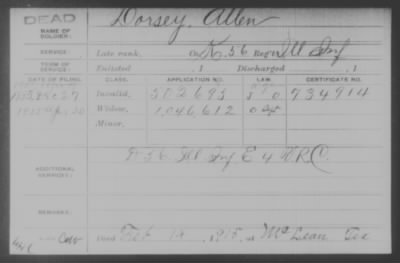 DEAD
Dorsey, Allen
NAME OF SOLDIER:
SERVICE:
Late rank, Co. K, 56 Reg't Ill Inf
TERM OF SERVICE:
Enlisted , 1 Discharged , 1
DATE OF FILING. CLASS. APPLICATION NO. LAW CERTIFICATE NO.
Invalid, 502,695 934914
Widow, 1,046,612
Minor,
ADDITIONAL SERVICES:
K 56 Ill Inf E 4 V.R.C.
REMARKS:
Died Feb 191 , at McLean